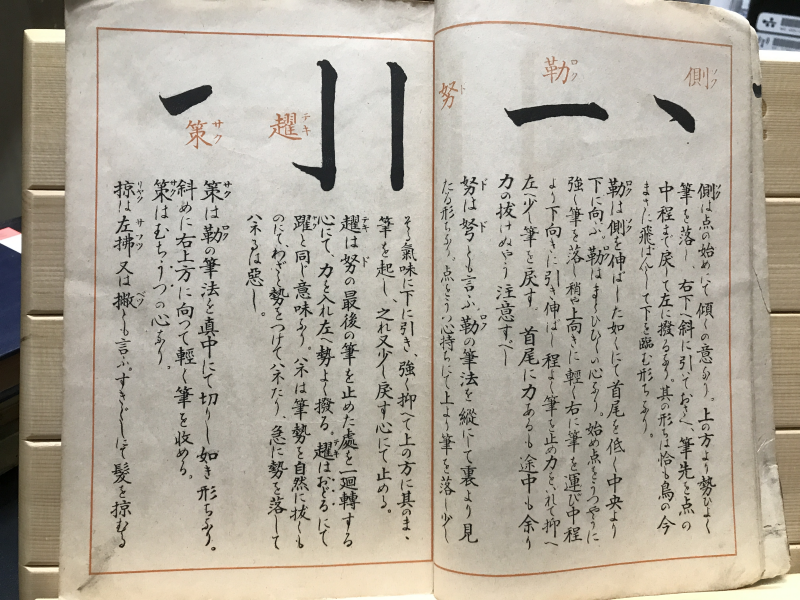 側ソク
勒ロク
努ト
趯テキ
策サク
側は点の始めにて傾くの意なり。上の方より勢ひよく
筆を落し、右下へ斜に引ておさへ、筆先を点の
中程まで戻して左に撥るなり。其の形ちは恰も鳥の今
まさに飛ばんとして下を臨む形ちなり。
勒は側を伸ばした如くにて首尾を低く中央より
下に向ふ。勒はまくひひくの心なり。始め点をうつやうに
強く筆を落し稍や上向きに輕く右に筆を運び中程
より下向きに引き伸ばし程よく筆を止め力を入れて抑へ
左へ少し筆を戻す。首尾に力あるも途中も余り
力の拔けぬやう注意すべし
努は弩とも言ふ。勒の筆法を縱にして裏より見
たる形ちなり。点をうつ心持ちにて上より筆を落し少し
そる氣味に下に引き、強く抑へて上の方に其のまゝ
筆を起し、之れ又少し戻す心にて止める。
趯は努の最後の筆を止めた處を一廻轉する
心にて、力を入れ左へ勢よく撥る。趯はおどるにて
躍と同じ意味なり。ハネは筆勢を自然に拔くも
のにて、わざと勢をつけてハネたり、急に勢を落して
ハネるは惡し。
策は勒の筆法を眞中にて切りし如き形ちなり。
斜めに右上方に向つて輕く筆を收める。
策はむちうつの心なり。
掠は左拂又は撇とも言ふ。すきぐしにて髪を掠むる